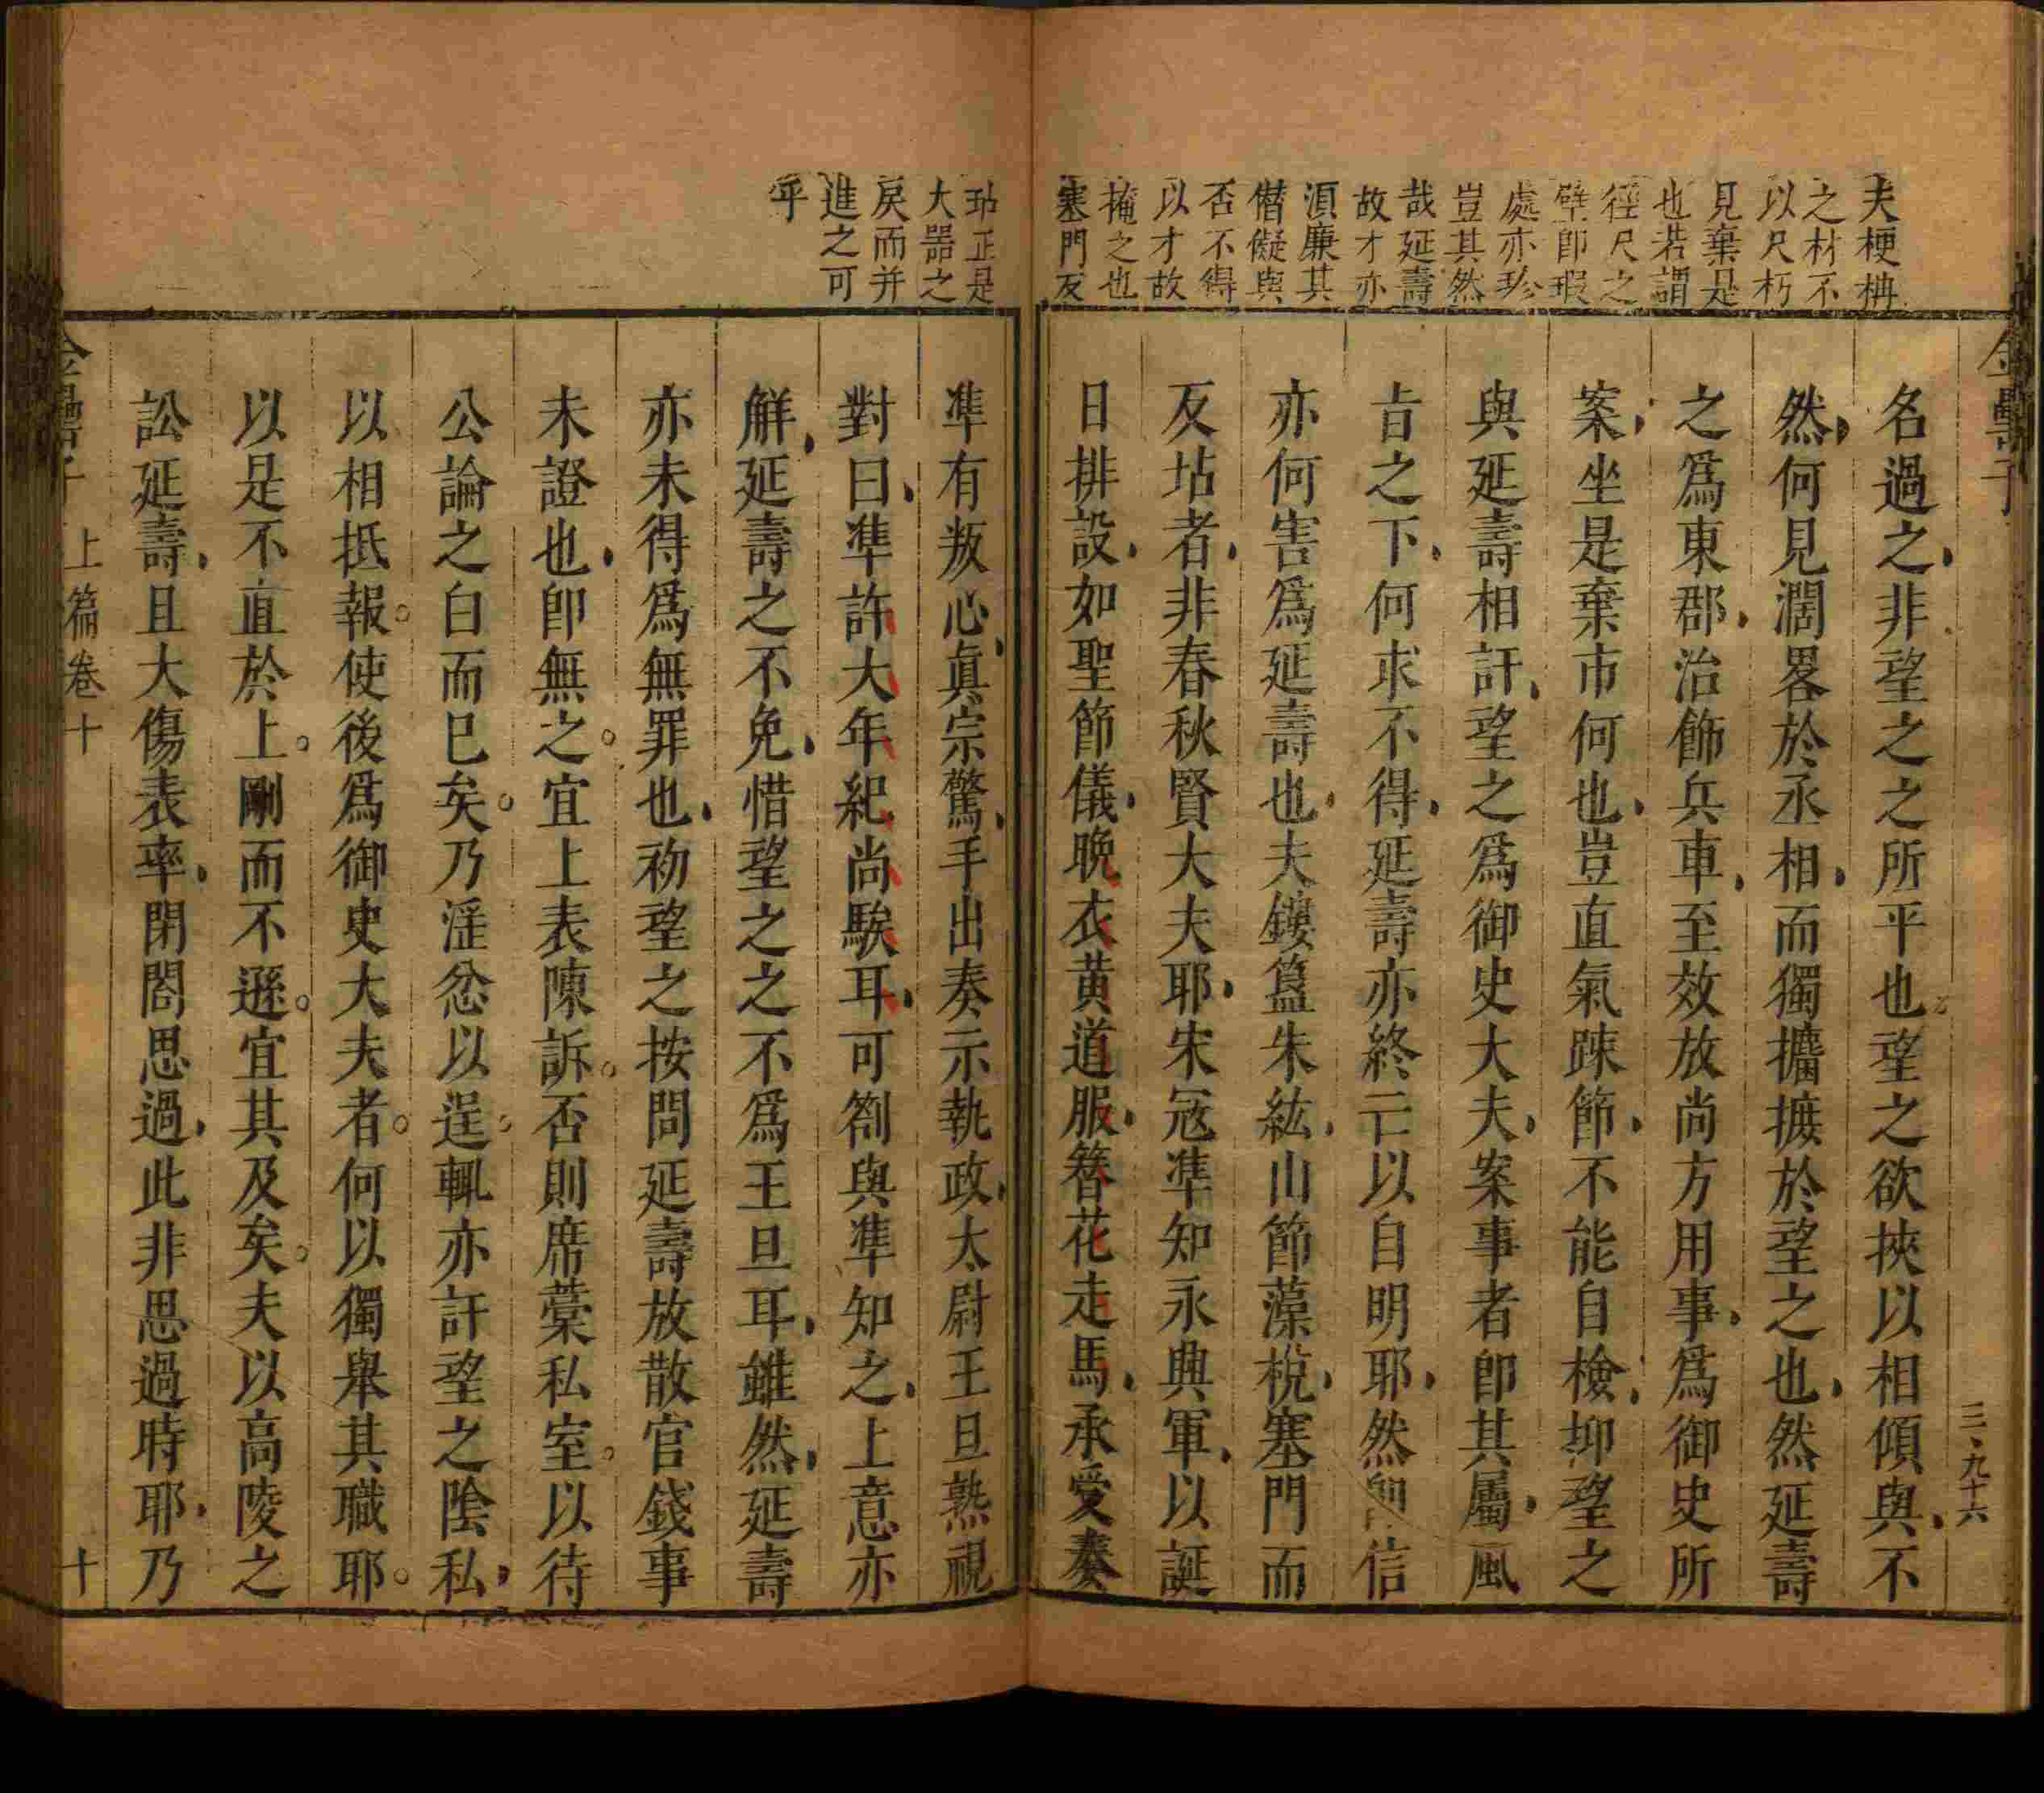 夫梗柟
之材不
以尺朽
見棄是
也若謂
徑尺之
壁卽瑕
處亦珍
豈其然
哉延壽
故才亦
湏廉其
僭儗與
否不得
以才故
掩之也
塞門反
玷正是
大噐之
戾而并
進之可
乎
金罍子
三、九十六
名過之非望之之所平也望之欲挾以相傾與不
然何見濶畧於丞相而獨攟摭於望之也然延壽
之爲東郡治飾兵車至效放尚方用事爲御史所
案坐是棄市何也豈直氣踈節不能自檢抑望之
與延壽相訐望之爲御史大夫案事者卽其屬風
㫖之下何求不得延壽亦終亡以自明耶然卽信
亦何害爲延壽也夫鏤簋朱紘山節藻梲塞門而
反坫者非春秋賢大夫耶宋冦凖知永興軍以誕
日排設如聖節儀晚衣黄道服簪花走馬承受奏
凖有叛心眞宗驚手出奏示執政太尉王旦熟視
對曰凖許大年紀尚騃耳可劄與凖知之上意亦
解延壽之不免惜望之之不爲王旦耳雖然延壽
亦未得爲無罪也初望之按問延壽放散官錢事
未證也卽無之宜上表陳訴否則席藁私室以待
公論之白而已矣乃滛忿以逞輒亦訐望之陰私
以相抵報使後爲御史大夫者何以獨舉其職耶
以是不直於上剛而不遜宜其及矣夫以高陵之
訟延壽且大傷表率閉閤思過此非思過時耶乃
金罍子 上篇卷十 十